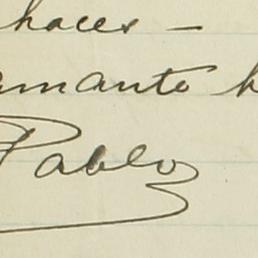 haces —
amante h
Pablo